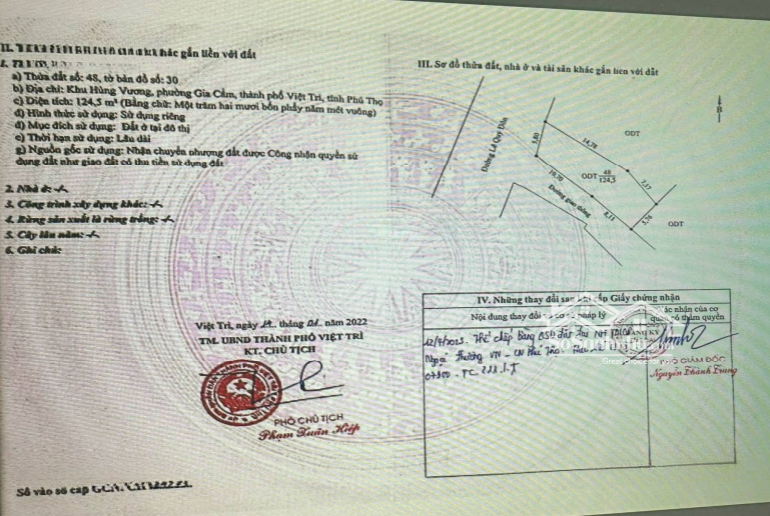 khác gắn liền với đất
a) Thửa đất số: 48, tờ bản đồ số: 30
b) Địa chỉ: Khu Hùng Vương, phường Gia Cẩm, thành phố Việt Trì, tỉnh Phú Thọ
c) Diện tích: 124,5 m² (Bằng chữ: Một trăm hai mươi bốn phẩy năm mét vuông)
d) Hình thức sử dụng: Sử dụng riêng
đ) Mục đích sử dụng: Đất ở tại đô thị
e) Thời hạn sử dụng: Lâu dài
g) Nguồn gốc sử dụng: Nhận chuyển nhượng đất được Công nhận quyền sử
dụng đất như giao đất có thu tiền sử dụng đất
2. Nhà ở: -/-
3. Công trình xây dựng khác: -/-
4. Rừng sản xuất là rừng trồng: -/-
5. Cây lâu năm: -/-
6. Ghi chú:
Việt Trì, ngày tháng 01 năm 2022
TM. UBND THÀNH PHỐ VIỆT TRÌ
KT. CHỦ TỊCH
PHÓ CHỦ TỊCH
Phạm Xuân Hiệp
Số vào sổ cấp
III. Sơ đồ thửa đất, nhà ở và tài sản khác gắn liền với đất
B
Đường Lê Quý Đôn
5,80
14,78
ODT
7,37
ODT 48
124,5
10,70
Đường giao thông
8,11
5,76
ODT
IV. Những thay đổi sau khi cấp Giấy chứng nhận
Nội dung thay đổi và cơ sở pháp lý
Xác nhận của cơ
quan có thẩm quyền
Thế chấp bằng QSD đất tại NH TMCP
Ngoại thương VN - CN Phú Thọ
PHÓ GIÁM ĐỐC
Nguyễn Thành Trung